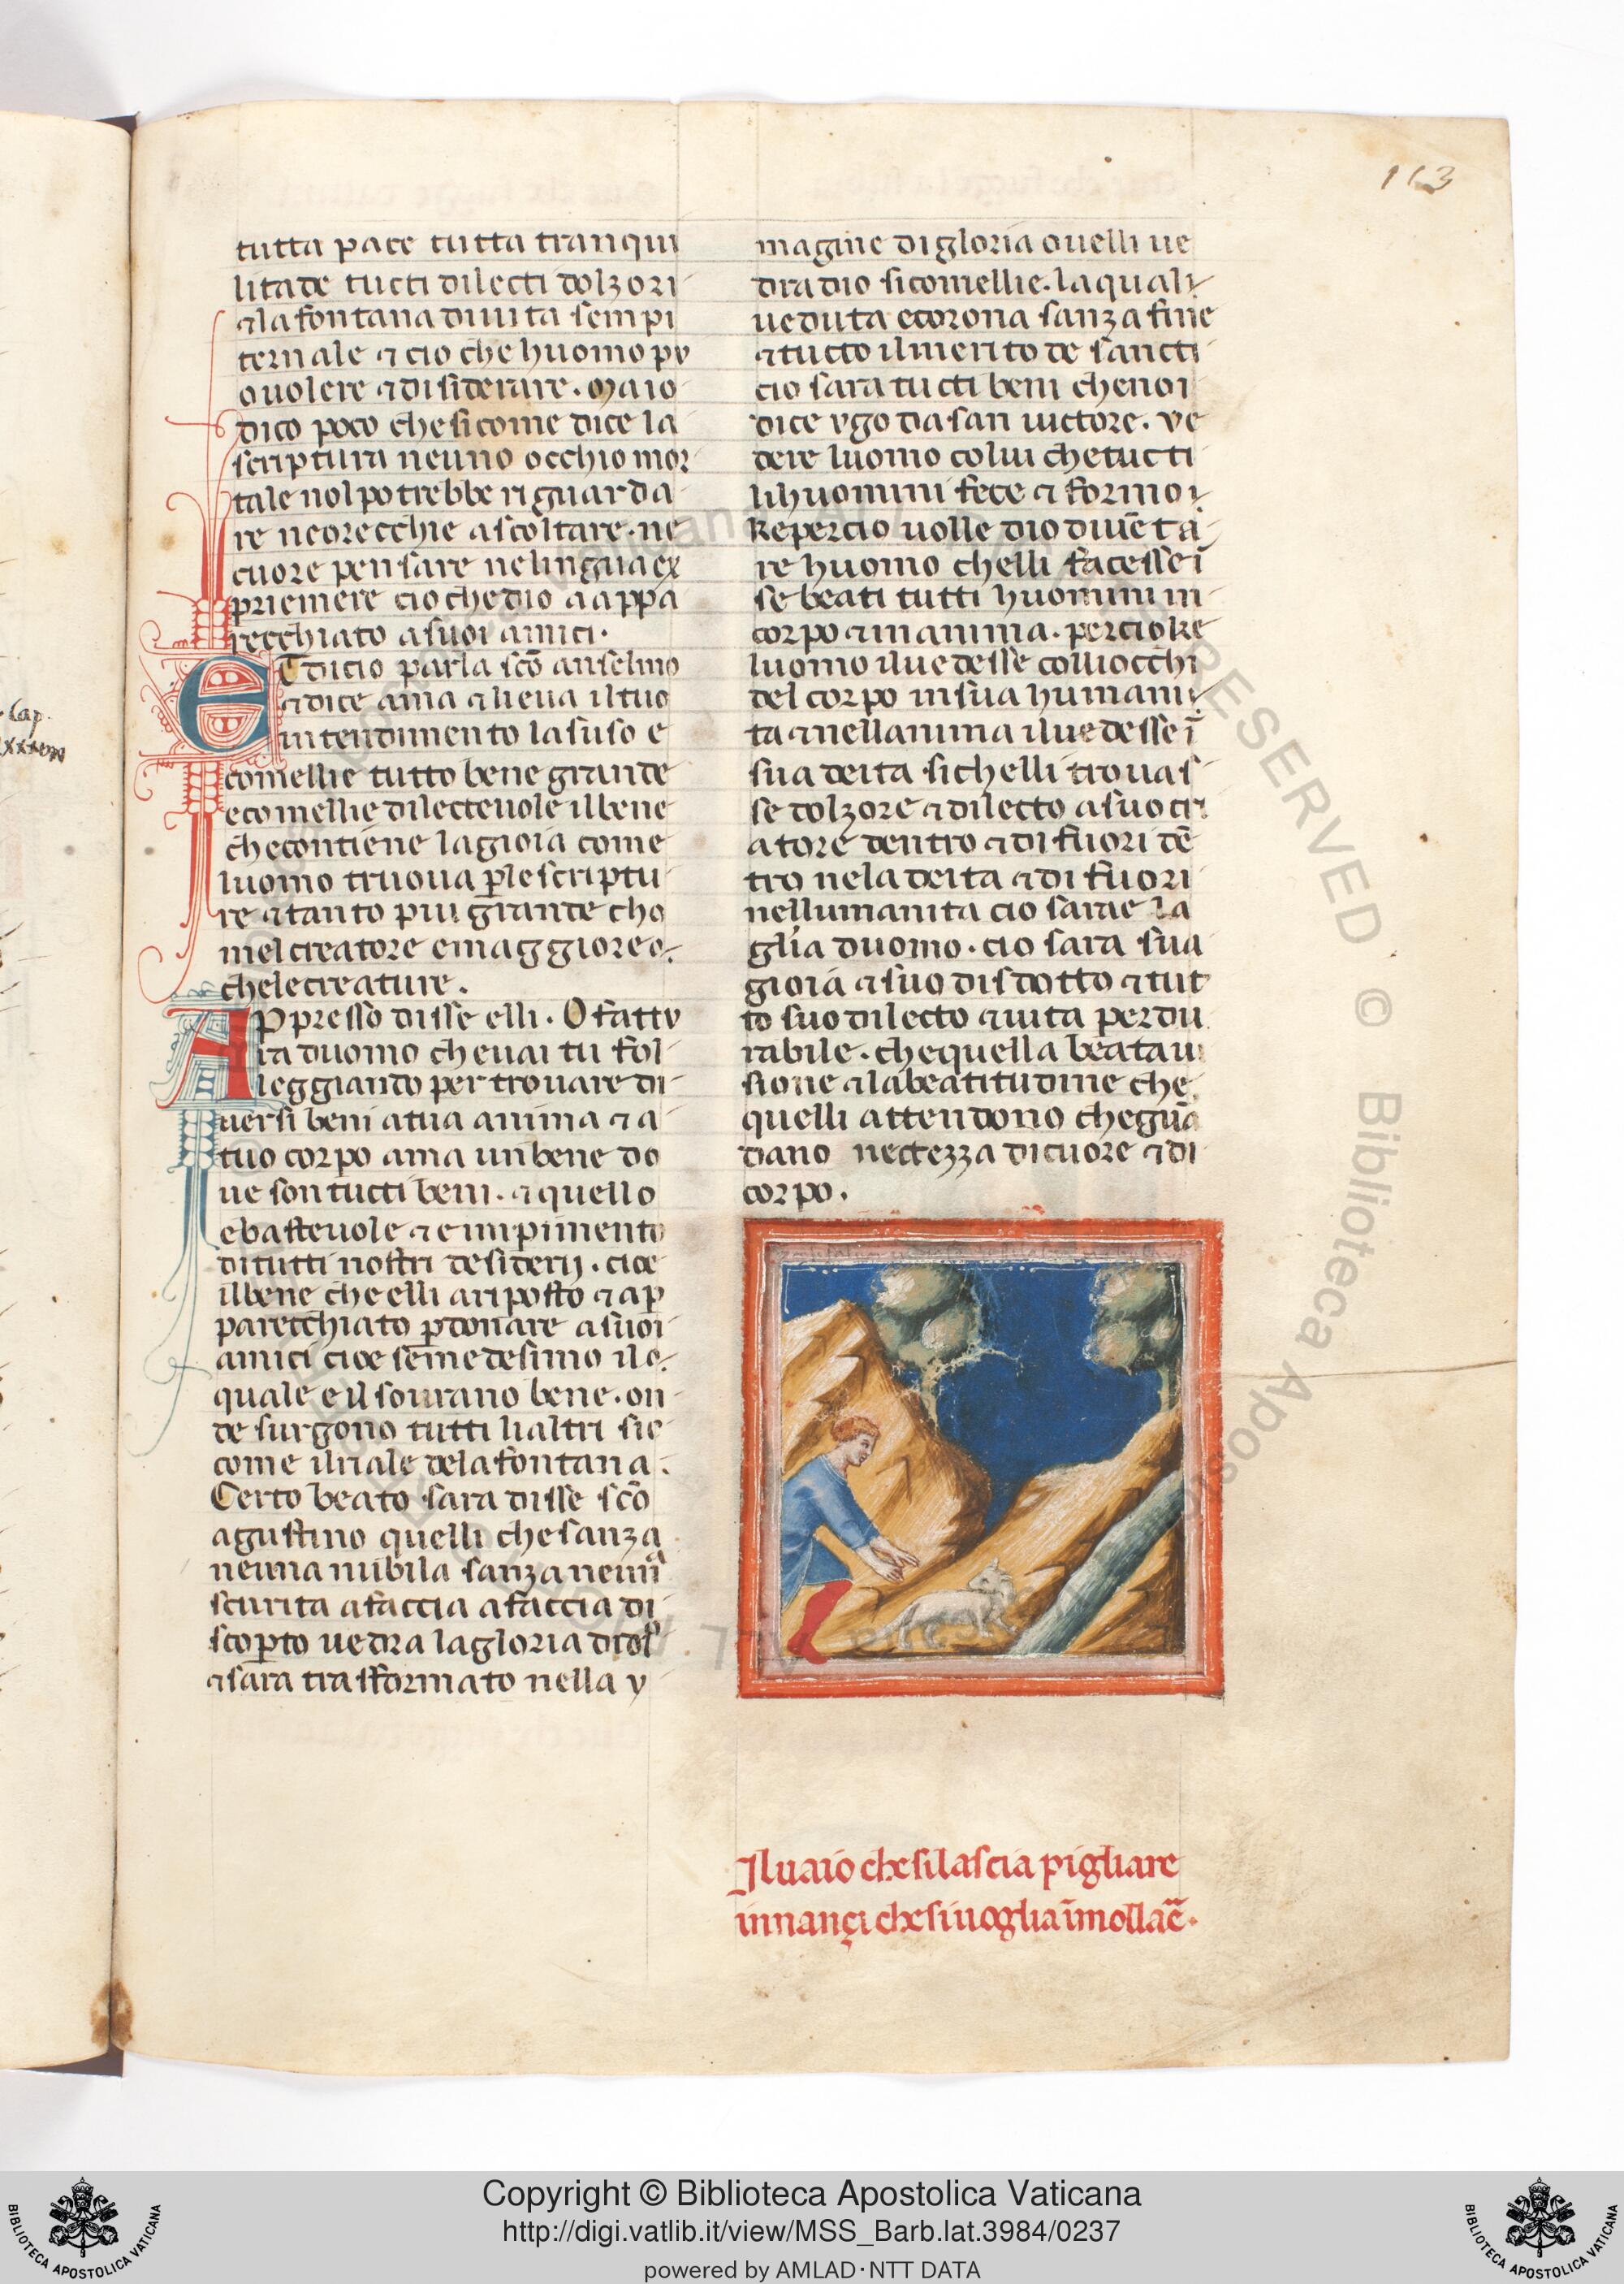 113
tutta pace tutta tranqui
litade tucti dilecti dolzori
⁊ la fontana diuita sempi
ternale ⁊ cio che huomo pv
o uolere ⁊ disiderare. Ma io
dico poco che sicome dice la
scriptura neuno occhio mor
tale nol potrebbe riguarda
re ne orecchie ascoltare. ne
cuore pensare ne lingua ex
priemere cio che dio a appa
recchiato a suoi amici.
ET di cio parla sc̄o anselmo
⁊ dice ama ⁊ lieua il tuo
intendimento la suso e
comellie tutto bene grande
e comellie dilecteuole il bene
che contiene la gioia come
luomo truoua p̱ le scriptu
re ⁊ tanto piu grande cho
mel creatore e maggiore
che le creature.
APpresso disse elli. O fattv
ra duomo che uai tu fol
leggiando per trouare di
uersi beni a tua anima ⁊ a
tuo corpo ama un bene do
ue son tucti beni. ⁊ quello
e basteuole ⁊ empimento
di tutti nostri desiderij. cioe
il bene che elli a riposto ⁊ ap
parecchiato p̱ donare a suoi
amici cioe se medesimo il
quale e il sourano bene. on
de surgono tutti li altri sic
come il riale de la fontana.
Certo beato sara disse sc̄o
agustino quelli che sanza
neuna nubila sanza neun
scurita a faccia a faccia di
scop̱to uedra la gloria di dio
⁊ sara trasformato nella y
magine di gloria ouelli ue
dra dio si comellie. la quali
ueduta e corona sanza fine
⁊ tucto il merito de sancti
cio sara tucti beni che noi
dice vgo da san uictore. ve
dere luomo colui che tucti
li huomini fece ⁊ formo
Ke percio uolle dio diuēta
re huomo chelli facesse ī
se beati tutti huomini in
corpo ⁊ in anima. percio ke
luomo il uedesse colli occhi
del corpo in sua humani
ta ⁊ nellanima il uedesse ī
sua deita si chelli trouas
se dolzore ⁊ dilecto a suo cri
atore dentro ⁊ di fuori dē
tro nela deita ⁊ di fuori
nellumanita cio sarae la
glia duomo. cio sara sua
gioia ⁊ suo disdotto ⁊ tut
to suo dilecto ⁊ uita perdu
rabile. che quella beata ui
sione ⁊ la beatitudine che
quelli attendono che gua
dano nectezza di cuore ⁊ di
corpo.
Il uaio che si lascia pigliare
innançi che si uoglia īmollar̄e.
Cap.
Copyright © Biblioteca Apostolica Vaticana
http://digi.vatlib.it/view/MSS_Barb.lat.3984/0237
powered by AMLAD·NTT DATA
BIBLIOTECA APOSTOLICA VATICANA
BIBLIOTECA APOSTOLICA VATICANA